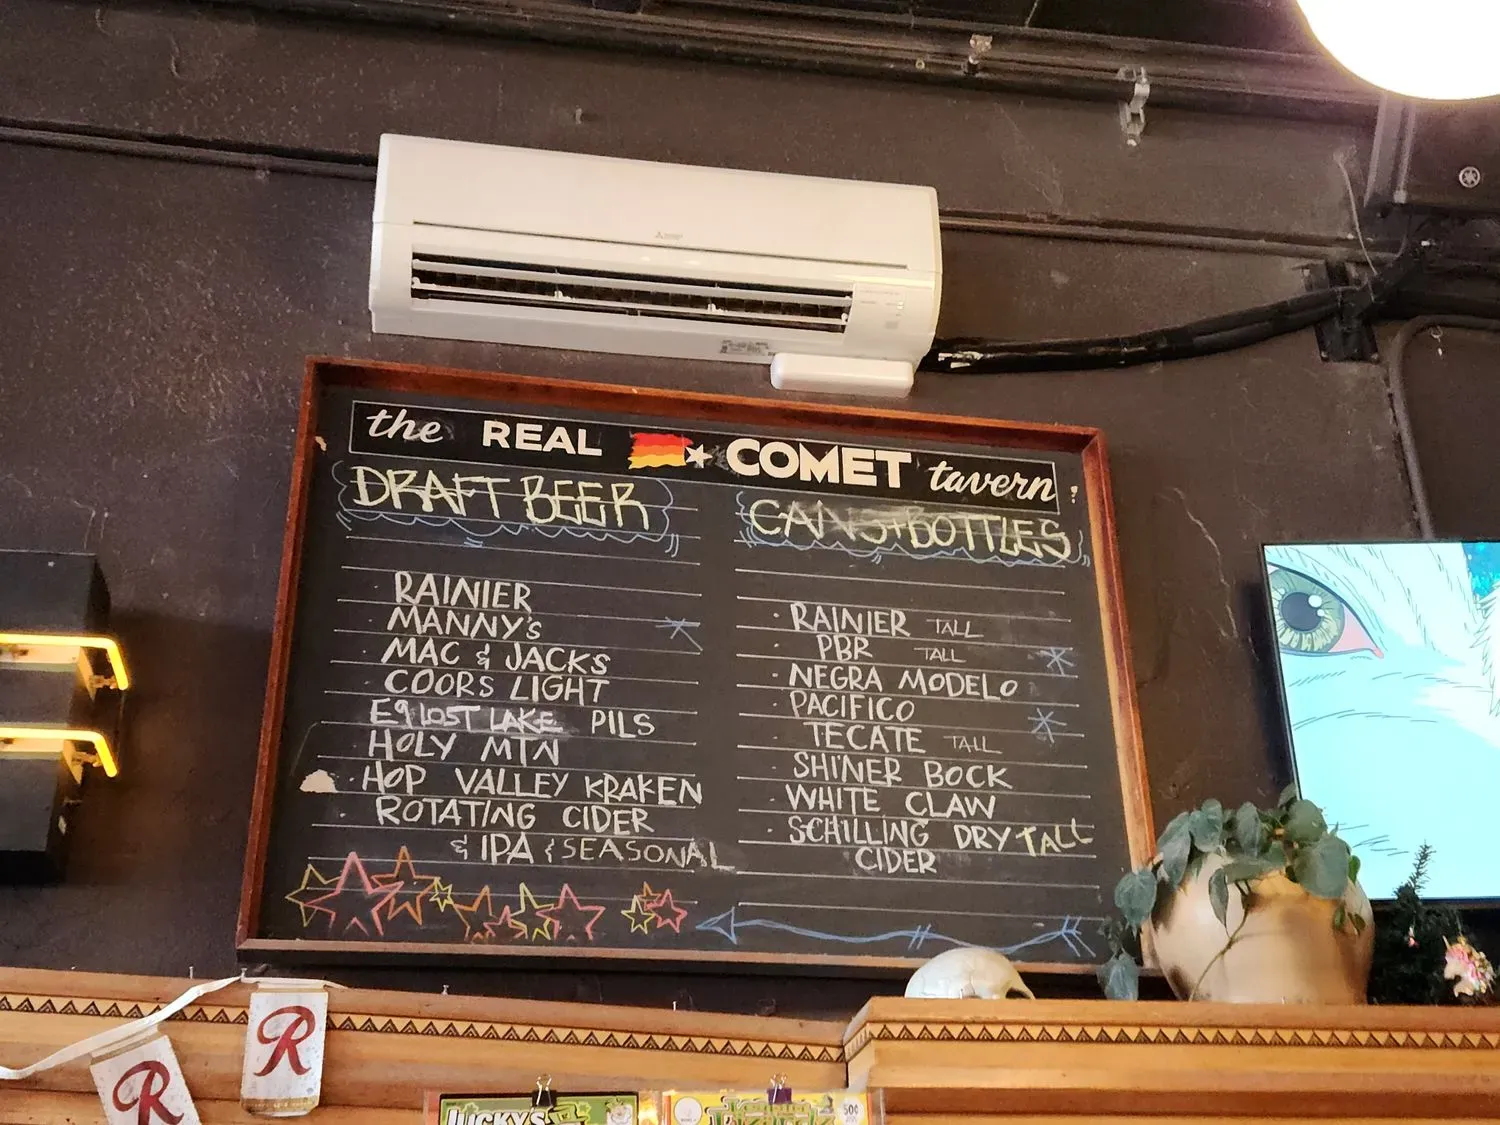 the REAL COMET tavern
DRAFT BEER
RAINIER
MANNY's
MAC & JACKS
COORS LIGHT
E9 LOST LAKE PILS
HOLY MTN
HOP VALLEY KRAKEN
ROTATING CIDER
& IPA & SEASONAL
CANS+BOTTLES
RAINIER TALL
PBR TALL
NEGRA MODELO
PACIFICO
TECATE TALL
SHINER BOCK
WHITE CLAW
SCHILLING DRY TALL
CIDER
R
R
LUCKY'S
50¢